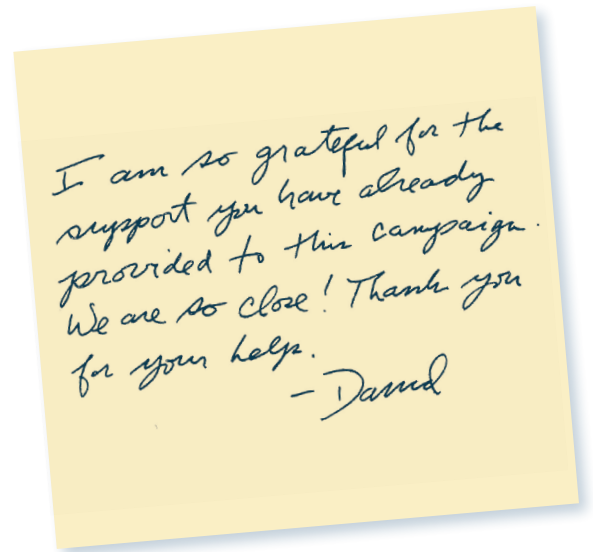 I am so grateful for the
support you have already
provided to this campaign.
We are so close! Thank you
for your help.
- David